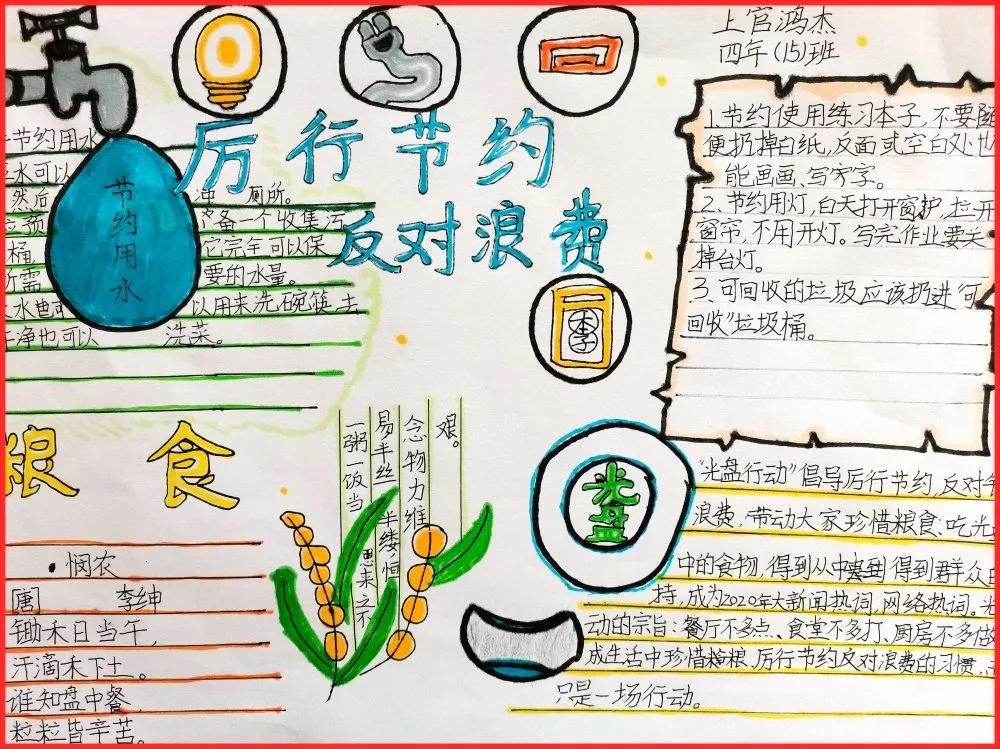 上官鸿杰
四年(15)班
厉行节约
反对浪费
节约用水
节约用水
水可以
然后 冲 厕所。
预 备一个收集污
桶, 它完全可以保
所需 要的水量。
水也可 以用来洗碗筷,去
净也可以 洗菜。
1.节约使用练习本子,不要随
便扔掉白纸,反面或空白处也
能画画、写字。
2、节约用灯,白天打开窗护,拉开
窗帘,不用开灯。写完作业要关
掉台灯。
3、可回收的垃圾应该扔进“可
回收”垃圾桶。
本子
粮食
·悯农
唐 李绅
锄禾日当午,
汗滴禾下土。
谁知盘中餐,
粒粒皆辛苦。
一粥一饭当
思来之不
易半丝半缕恒
念物力维
艰。
光盘
“光盘行动”倡导厉行节约,反对
浪费,带动大家珍惜粮食、吃光
中的食物,得到从中 得到群众
持,成为2020年大新闻热词,网络热词。光
动的宗旨:餐厅不多点、食堂不多打、厨房不多做
成生活中珍惜 粮,厉行节约反对浪费的习惯,
只是一场行动。